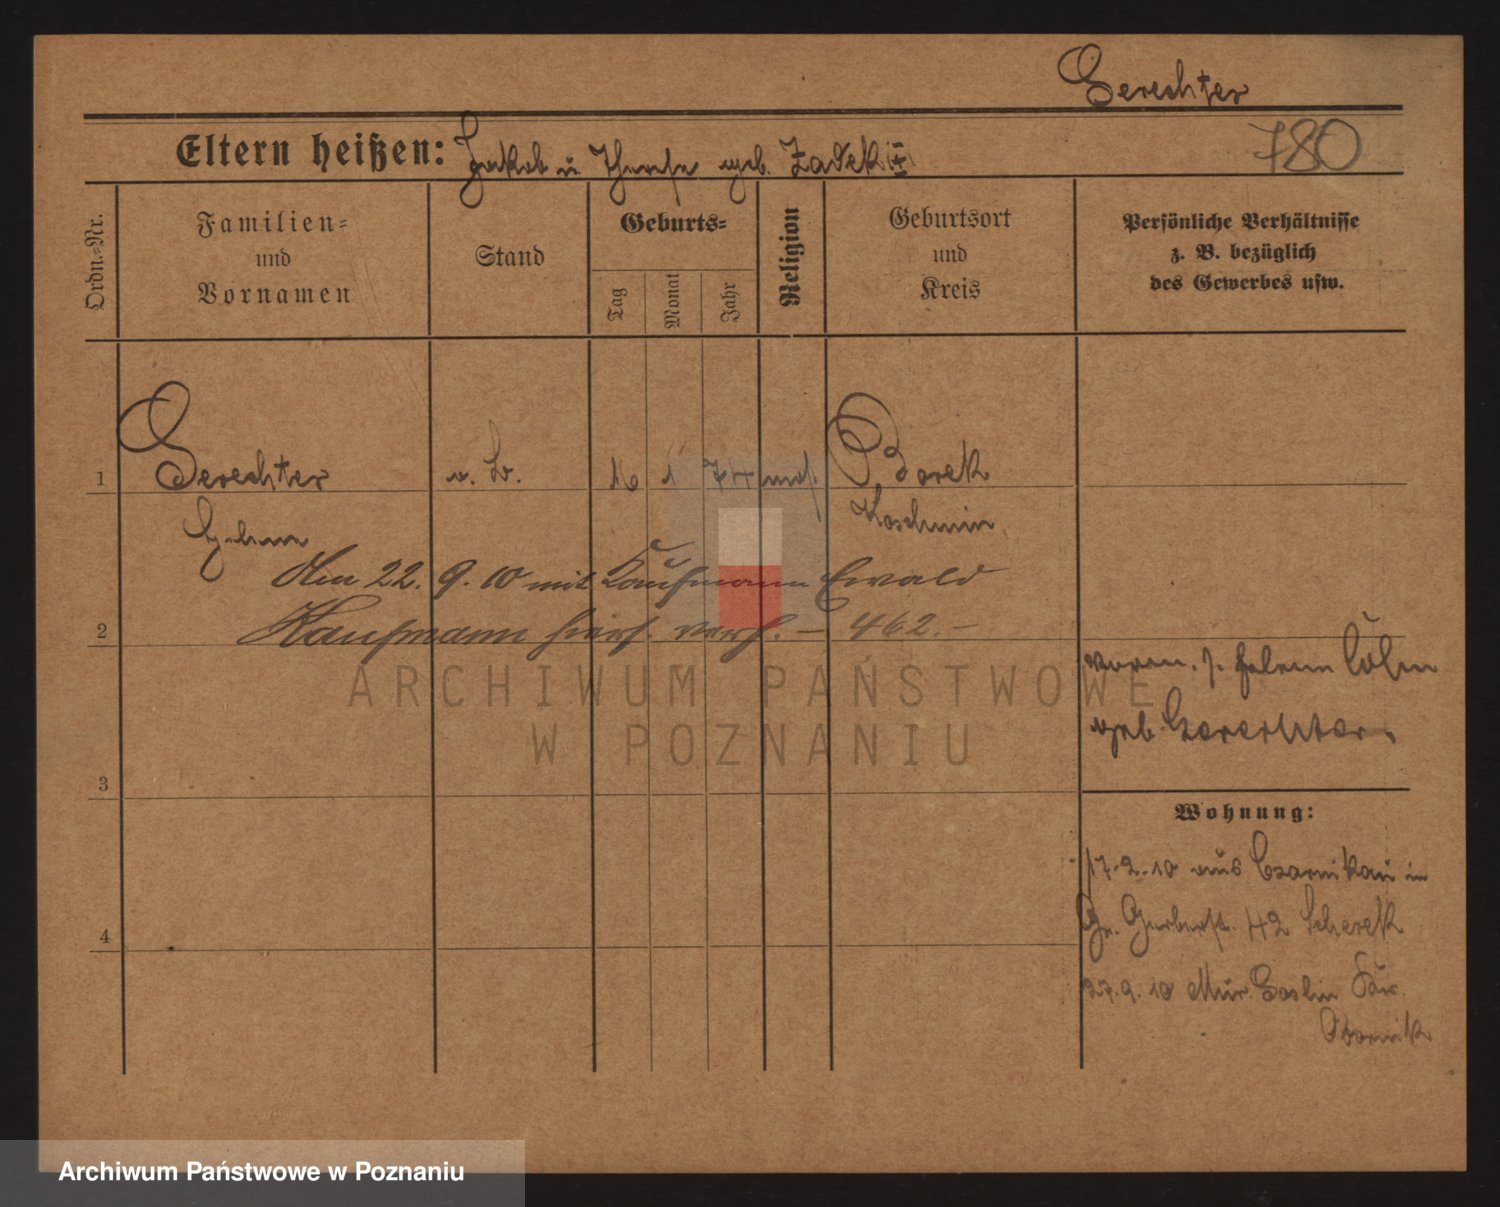 Gerechter
Eltern heißen: Jakob u. Therese geb. Zadek
780
Ordn.-Nr.
Familien-
und
Vornamen
Stand
Geburts-
Tag
Monat
Jahr
Religion
Geburtsort
und
Kreis
Persönliche Verhältnisse
z. B. bezüglich
des Gewerbes usw.
1 Gerechter 16 1 74 mos. Borek
Koschmin
Am 22. 9. 10 mit Kaufmann Ewald
2 Kaufmann hier verh. – 462. –
geb. Gerechter.
3
Wohnung:
17.2.10 aus Czarnikau in
Gr. Gerberstr. 42 Scherek
4
27.9.10 Mur. Goslin Kr.
Obornik
ARCHIWUM PAŃSTWOWE
W POZNANIU
Archiwum Państwowe w Poznaniu